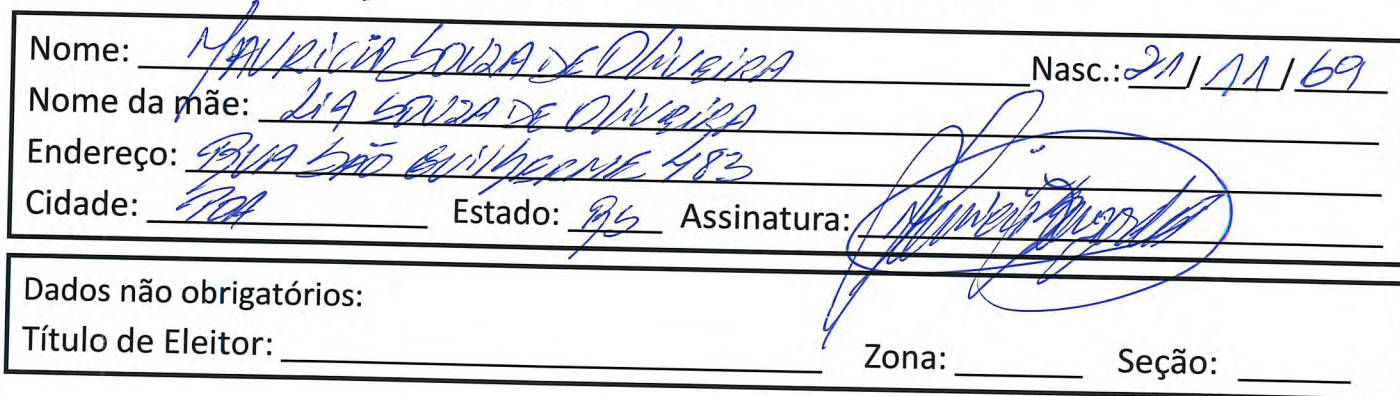 Nome: MAURICIO SOUZA DE OLIVEIRA Nasc.: 21/11/69
Nome da mãe: LIA SOUZA DE OLIVEIRA
Endereço: RUA SÃO GUILHERME 483
Cidade: POA Estado: RS Assinatura:
Dados não obrigatórios:
Título de Eleitor: Zona: Seção: